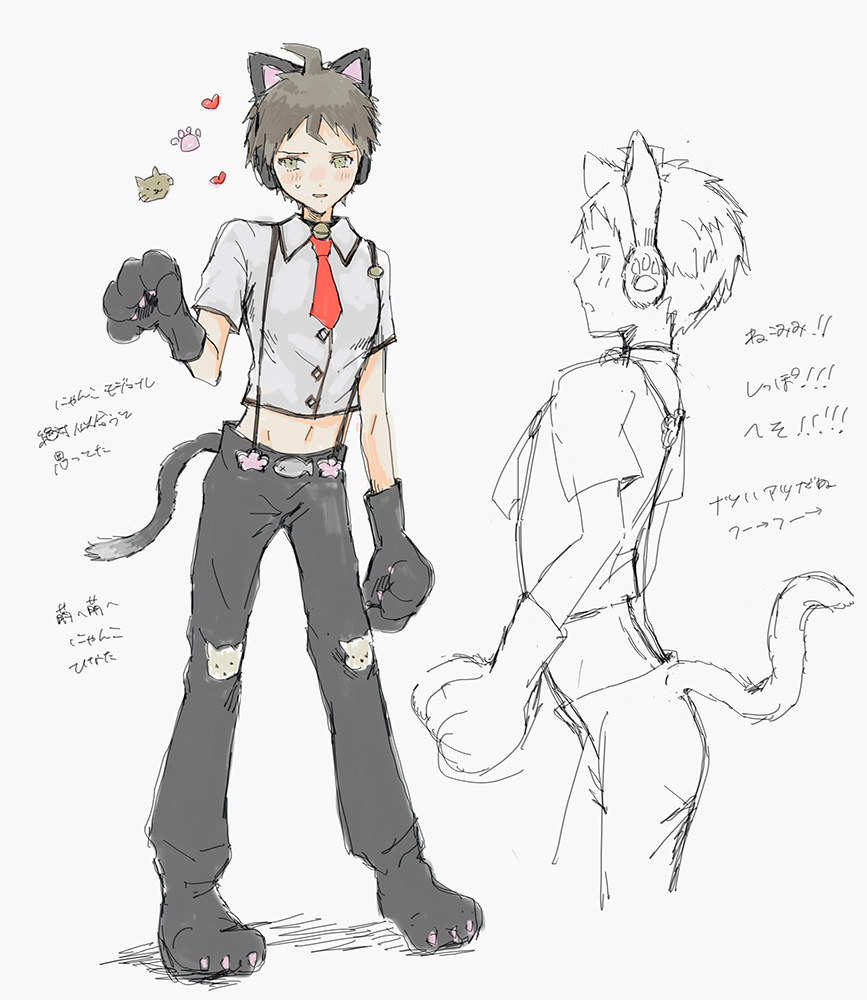 にゃんこ モジュール
絶対似合うって
思ってた
萌へ萌へ
にゃんこ
ひなた
ねこみみ!!
しっぽ!!!
へそ!!!!!
ナツいアツだぬ
フー→フー→